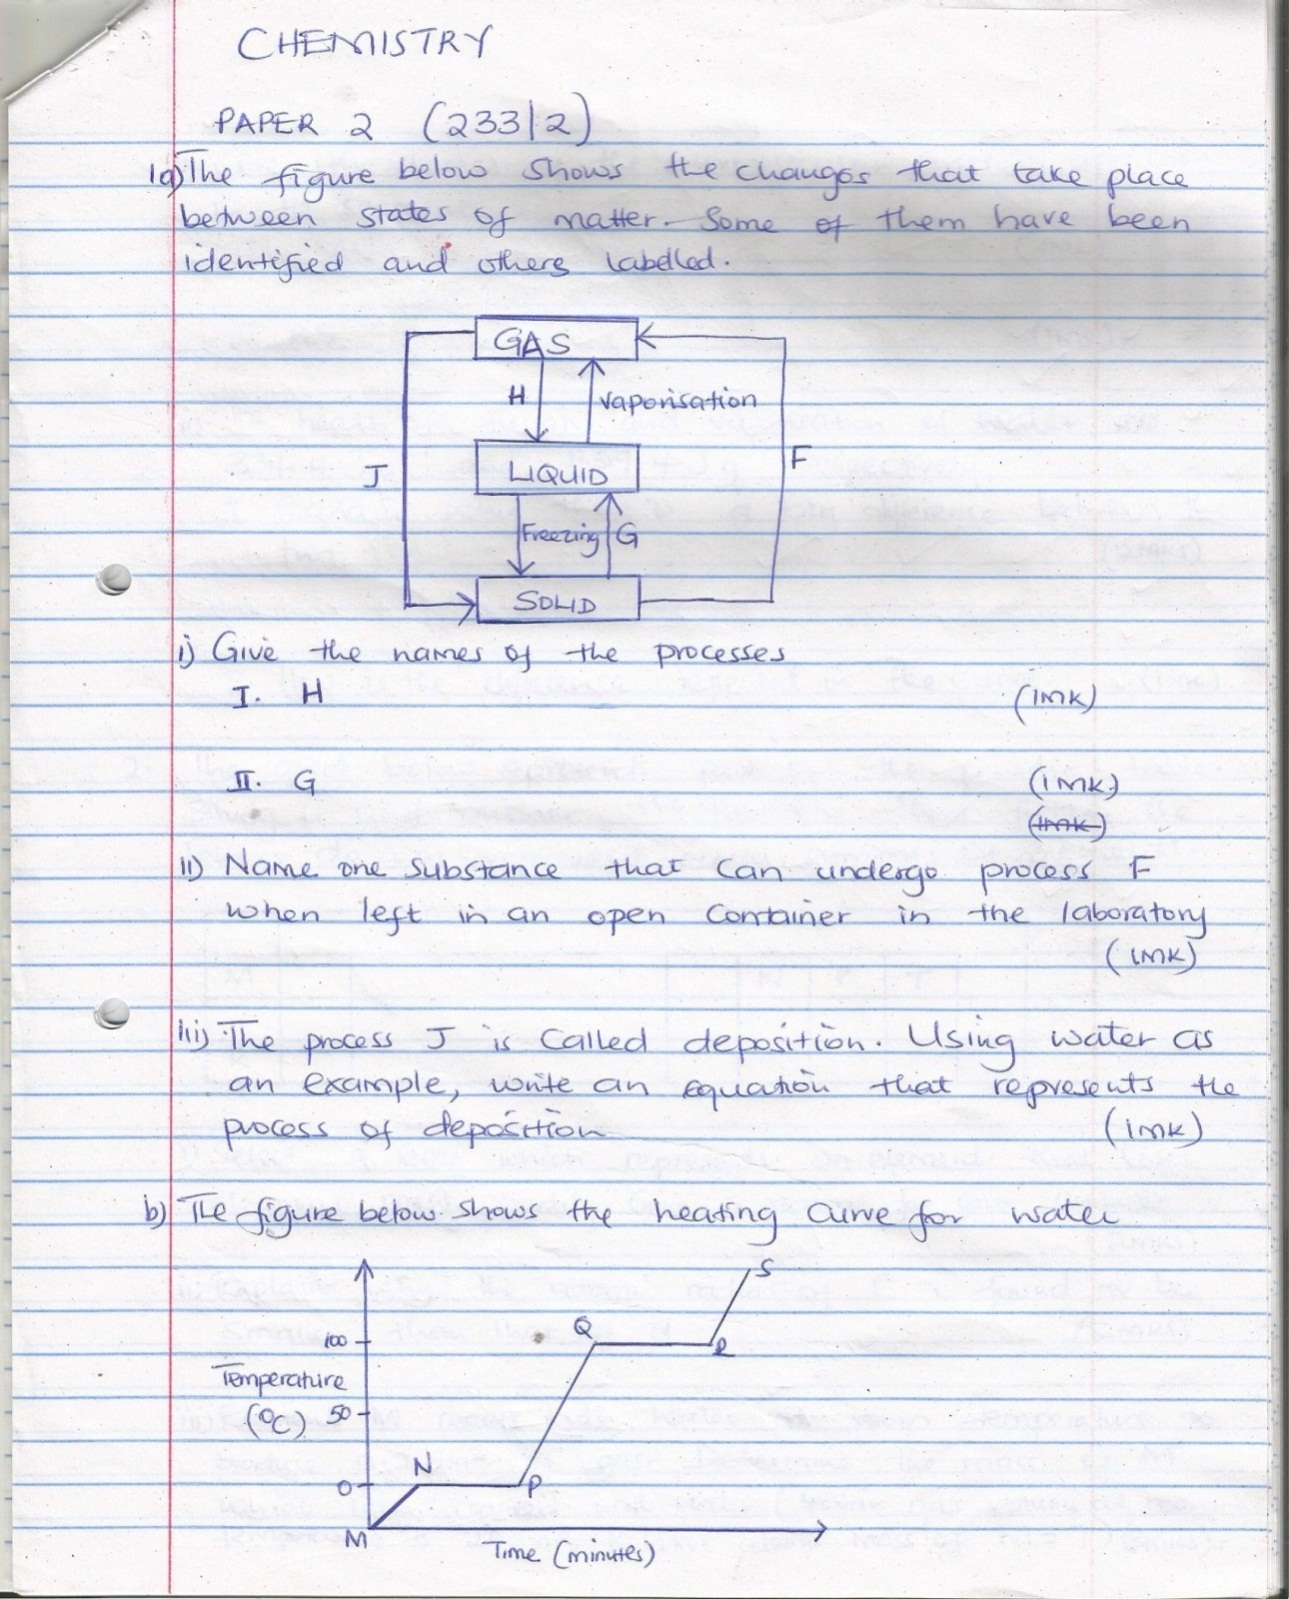 CHEMISTRY
PAPER 2 (233|2)
1a) The figure below shows the changes that take place
between states of matter. Some of them have been
identified and others labelled.
GAS
H
vaporisation
J
LIQUID
F
Freezing
G
SOLID
i) Give the names of the processes
I. H (1mk)
II. G (1mk)
(1mk)
ii) Name one substance that can undergo process F
when left in an open container in the laboratory
(1mk)
iii) The process J is called deposition. Using water as
an example, write an equation that represents the
process of deposition (1mk)
b) The figure below shows the heating curve for water
S
Q
100
R
Temperature
(°C)
50
N
0
P
M
Time (minutes)